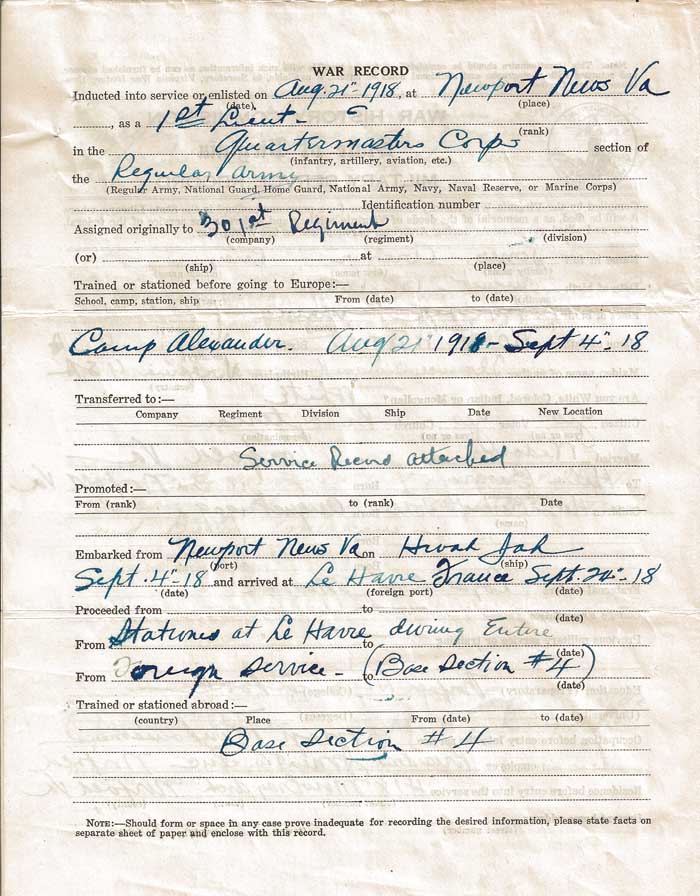 WAR RECORD
Inducted into service or enlisted on Aug. 21" 1918, at Newport News Va
(date) (place)
, as a 1st Lieut-
(rank)
in the Quartermasters Corps section of
(infantry, artillery, aviation, etc.)
the Regular Army
(Regular Army, National Guard, Home Guard, National Army, Navy, Naval Reserve, or Marine Corps)
Identification number
Assigned originally to 301st Regiment
(company) (regiment) (division)
(or) at
(ship) (place)
Trained or stationed before going to Europe:—
School, camp, station, ship From (date) to (date)
Camp Alexander. Aug 21" 1918- Sept 4" 18
Transferred to:—
Company Regiment Division Ship Date New Location
Service Record attached
Promoted:—
From (rank) to (rank) Date
Embarked from Newport News Va on
(port) (ship)
Sept. 4"-18 and arrived at Le Havre France Sept. 20"-18
(date) (foreign port) (date)
Proceeded from to
(date)
From Stationed at Le Havre during Entire to
(date)
From Foreign Service- to (Base Section #4)
(date)
Trained or stationed abroad:—
(country) Place From (date) to (date)
Base Section #4
NOTE:—Should form or space in any case prove inadequate for recording the desired information, please state facts on
separate sheet of paper and enclose with this record.